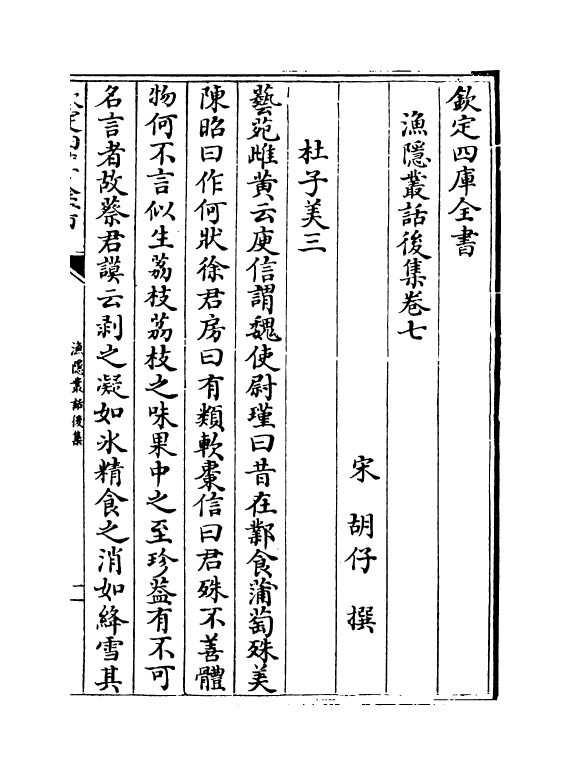 欽定四庫全書
漁隱叢話後集卷七
宋 胡仔 撰
杜子美三
藝苑雌黄云庾信謂魏使尉瑾曰昔在鄴食蒲萄殊美
陳昭曰作何狀徐君房曰有類軟棗信曰君殊不善體
物何不言似生荔枝荔枝之味果中之至珍葢有不可
名言者故蔡君謨云剥之凝如氷精食之消如絳雪其
漁隱叢話後集